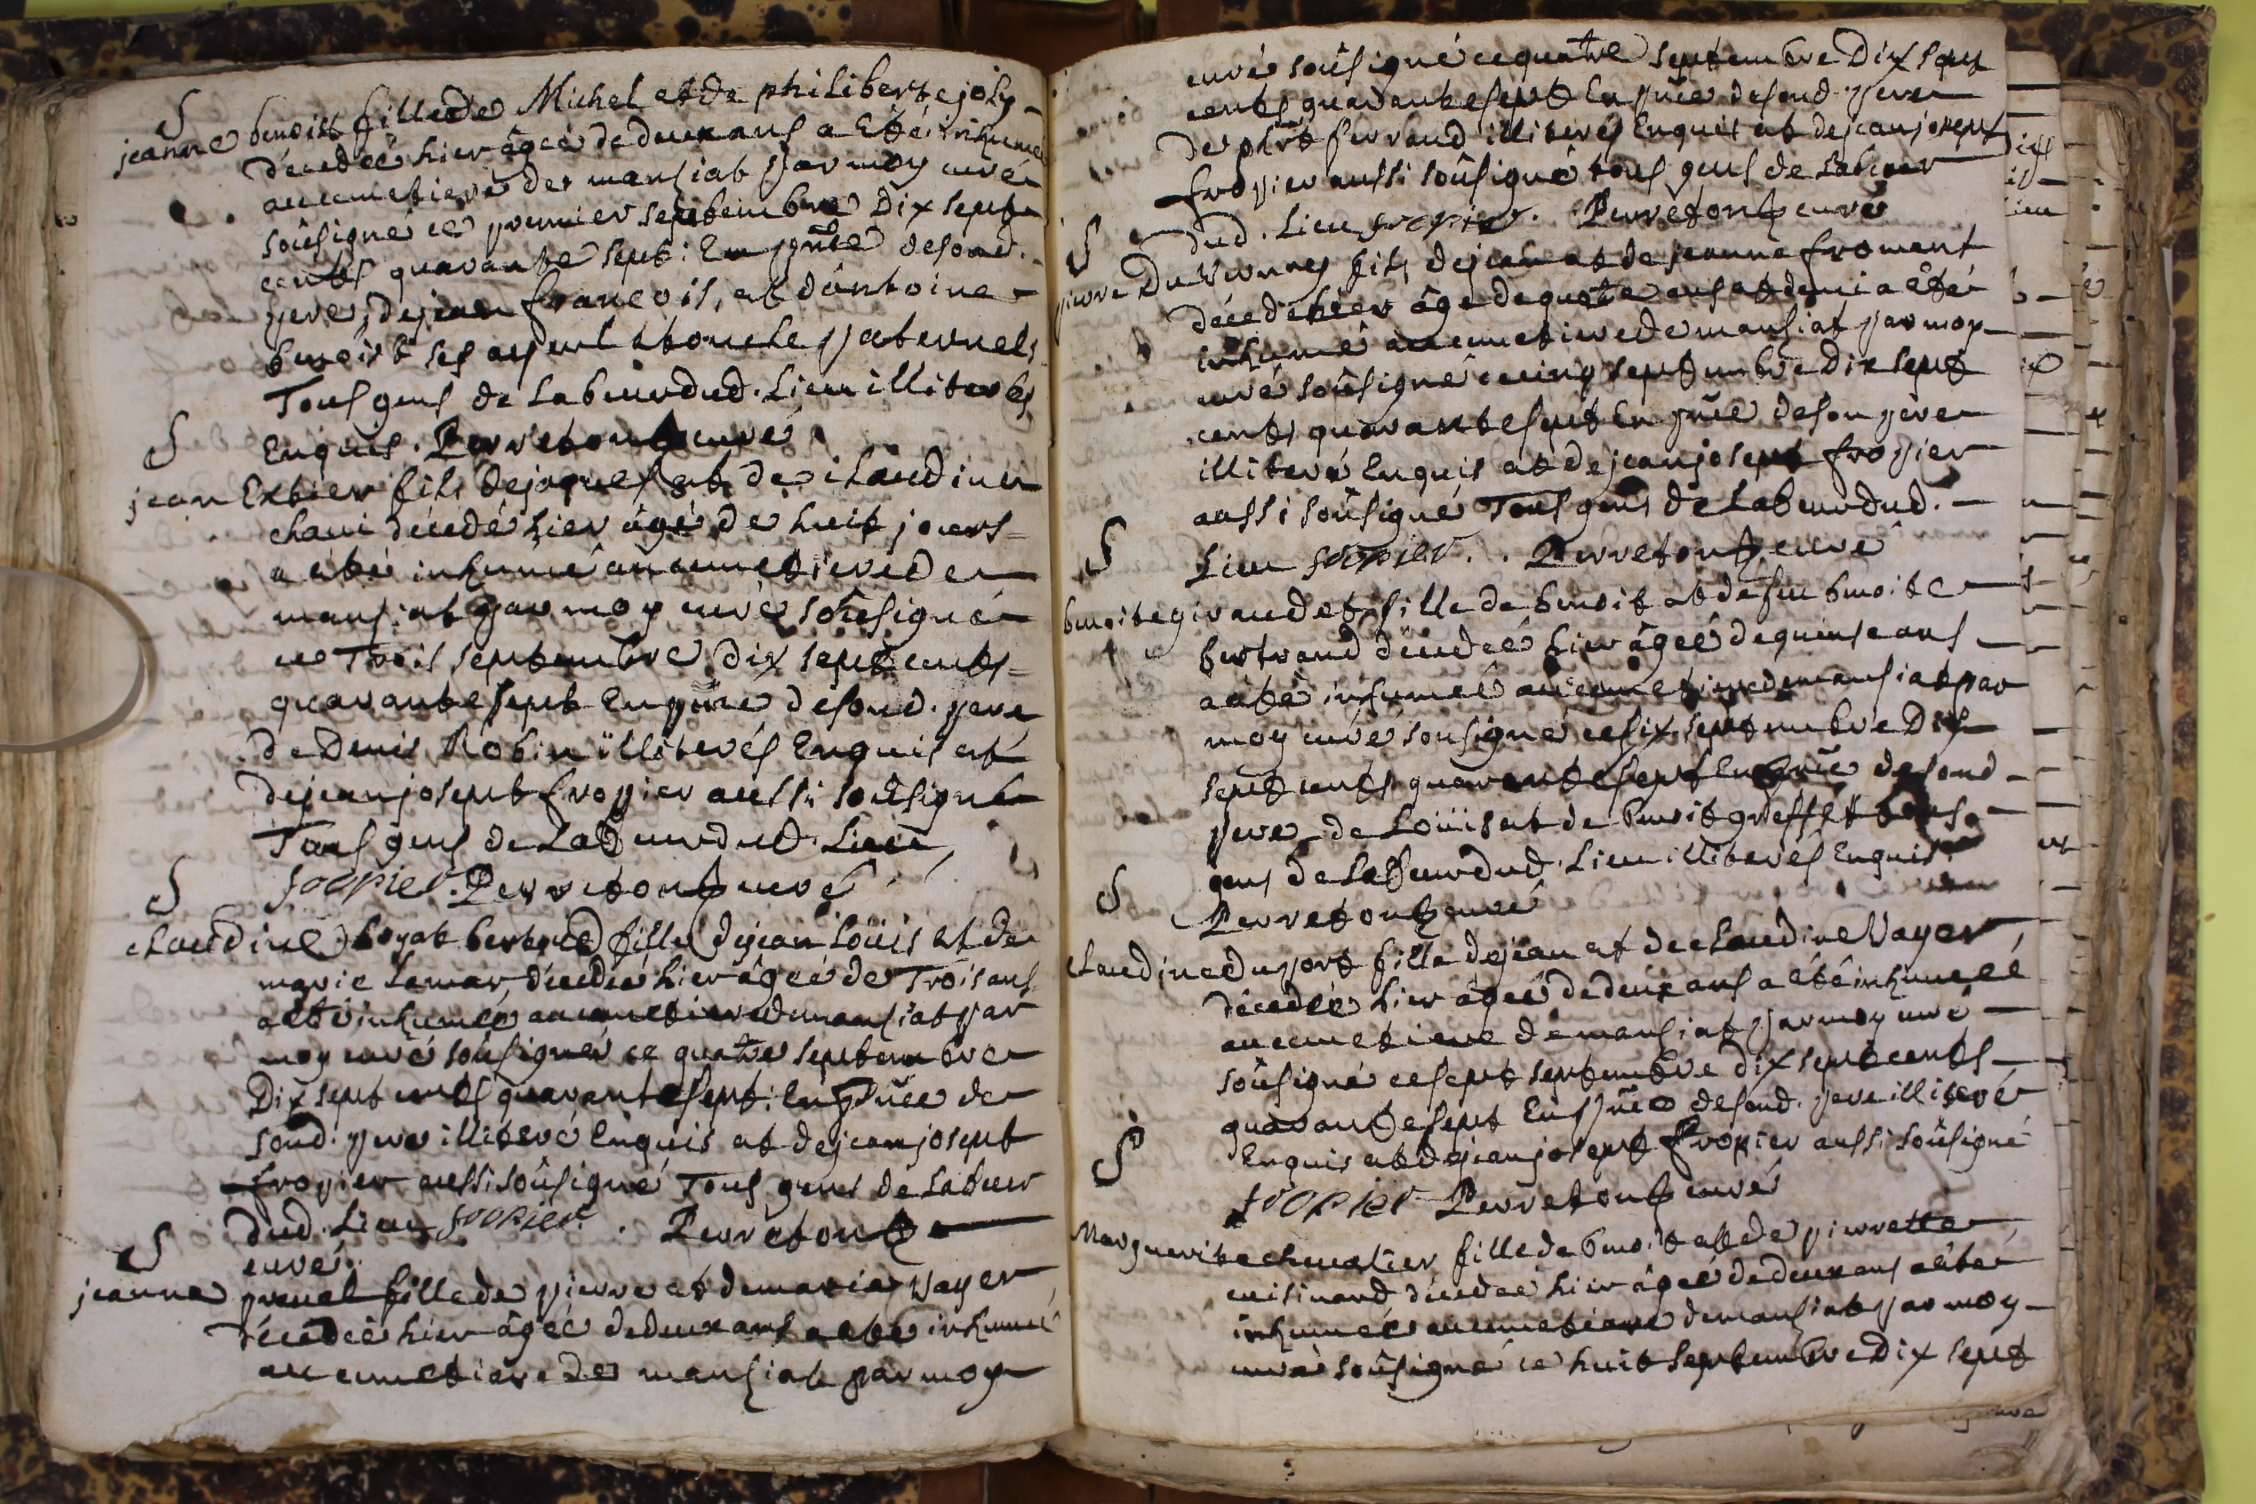 S
jeanne benoist fille de Michel et de philiberte joly
décedée hier âgée de deux ans a Eté inhumée
au cimetiere de mansiat par moy curé
soûsigné ce premier septembre Dix sept
cents quarante sept: En pñce de sond.
pere, de jean francois, et d'antoine
benoist ses ayeul et oncle paternels
Tous gens de labeur dud. Lieu illiterés
S
Enquis. Perretont curé
jean Exbier fils de jaques et de claudine
chavi décedé hier âgé de huit jours
a été inhumé au cimetiere de
mansiat par moy curé soûsigné
ce Trois septembre dix sept cents
quarante sept En pñce de sond. pere
de Denis Robin illiterés Enquis et
de jean josept fropier aussi soûsigné
Tous gens de Labeur dud. Lieu
S
fropier. Perretont curé
claudine boyat bertoud fille de jean Loüis et de
marie Lamar, décedée hier âgée de Trois ans
a été inhumée au cimetiere de mansiat par
moy curé soûsigné ce quatre septembre
Dix sept cents quarante sept: En pñce de
sond. pere illiteré Enquis et de jean josept
fropier aussi soûsigné Tous gens de Labeur
dud. Lieu fropier. Perretont
S
curé
jeanne preuel fille de pierre et de marie Vayer
décedée hier âgée de deux ans a été inhumée
au cimetiere de mansiat par moy
curé soûsigné ce quatre septembre Dix sept
cents quarante sept En pñce de sond. pere
de phrt ferrand illiterés Enquis et de jean josept
fropier aussi soûsigné tous gens de Labeur
dud. Lieu fropier. Perretont curé
S
pierre Duvivunes fils de jean et de jeanne froment
décedé hier âgé de quatre ans et demi a été
inhumé au cimetiere de mansiat par moy
curé soûsigné ce cinq septembre Dix sept
cents quarante sept En pñce de son pere
illiteré Enquis et de jean josept fropier
aussi soûsigné Tous gens de Labeur dud.
S
Lieu fropier. Perretont curé
benoite giraudet fille de benoit et de feu benoite
bertrand décedée hier âgée de quinse ans
a été inhumée au cimetiere de mansiat par
moy curé sousigné ce six septembre Dix
sept cents quarante sept En pñce de sond
pere de Loüis et de benoit greffet tous
gens de Labeur dud. Lieu illiterés Enquis
S
Perretont curé
claudine duport fille de jean et de claudine Vayer
décedée hier âgée de deux ans a été inhumée
au cimetiere de mansiat par moy curé
soûsigné ce sept septembre dix sept cents
quarante sept En pñce de sond. pere illiteré
Enquis et de jean josept fropier aussi soûsigné
S
fropier Perretont curé
Marguerite chevalier fille de benoit et de pierrette
cuisinard décedée hier âgée de deux ans a été
inhumée au cimetiere de mansiat par moy
curé soûsigné ce huit septembre Dix sept